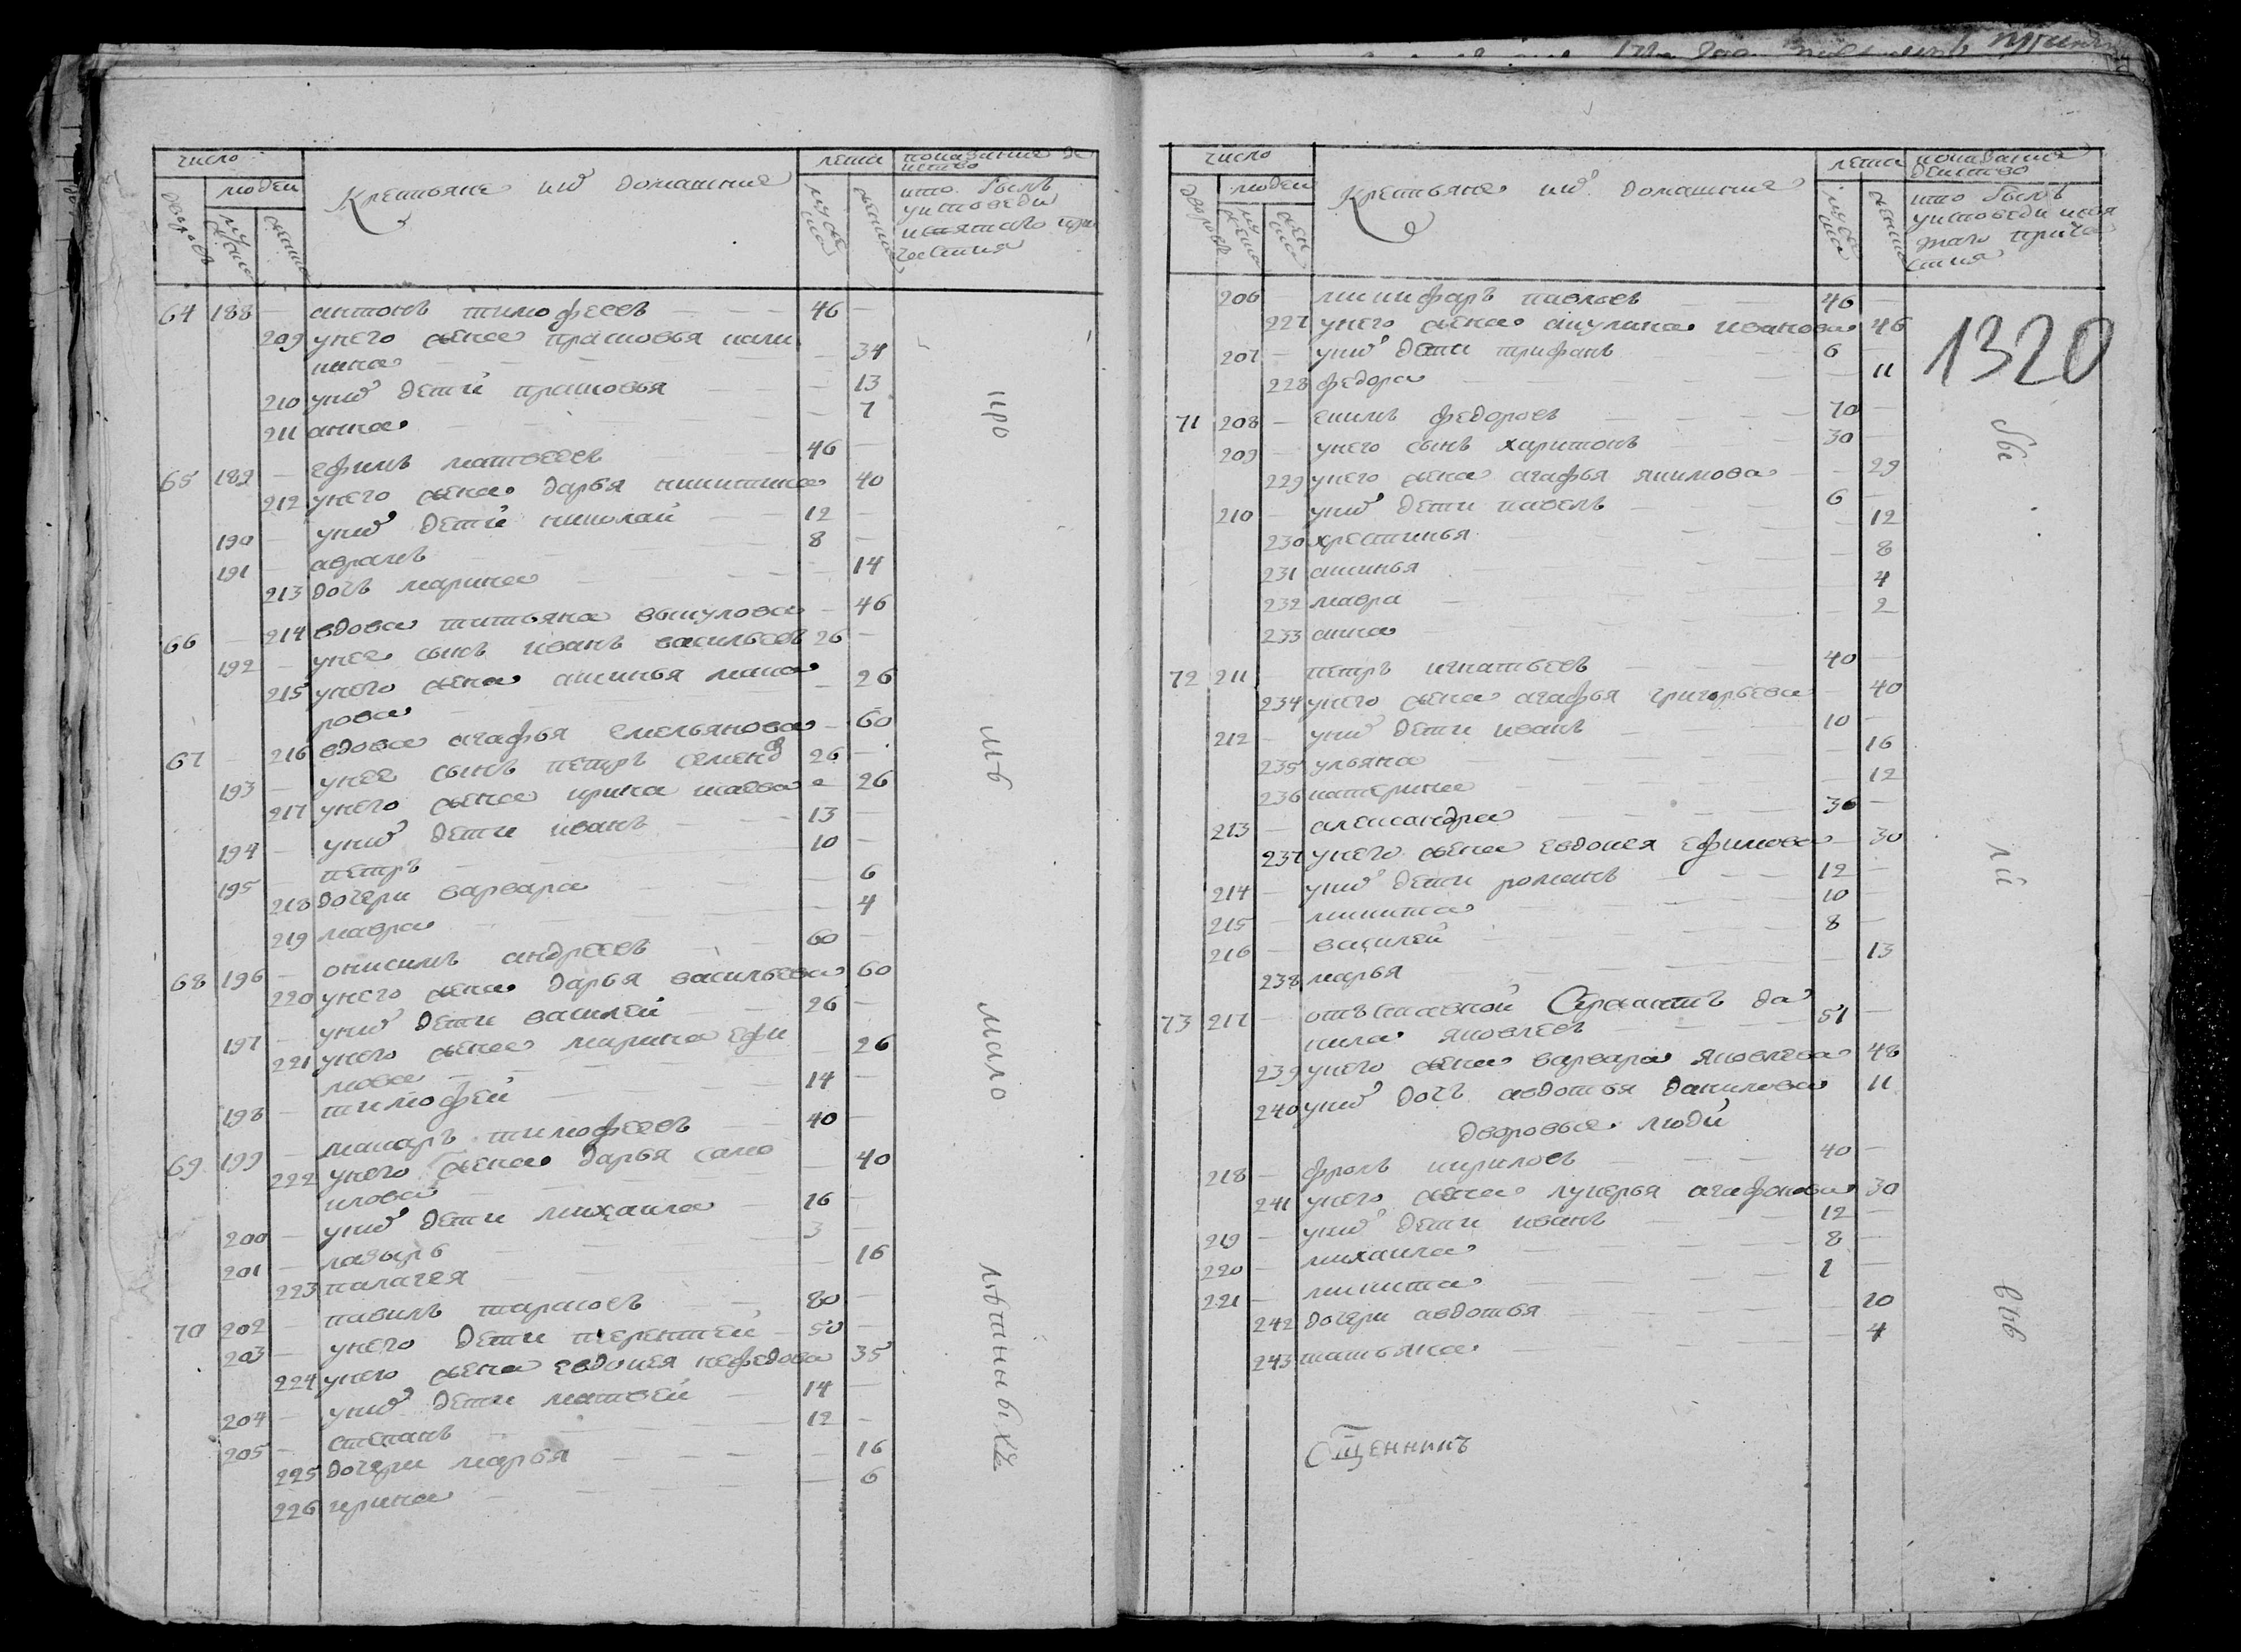 число
лета
показание де
иство
людей
Крестьяне их домашние
кто былъ
у исповеди
и святаго при
частия
дворовъ
мужеска
женска
мужеска
женска
64 188 — антонъ тимофеевъ — 46 —
209 у него жена прасковья кали
нина — — 34
210 у них дети прасковья — — 13
211 анна — — 7
65 189 — ефимъ матвеевъ — 46 —
212 у него жена дарья никитина 40
190 — у них дети николай — 12 —
191 — аврамъ — 8 —
213 дочь марина — — 14
66 — 214 вдова татьяна викулова — 46
192 — у нее сынъ иванъ васильевъ 26 —
215 у него жена аксинья мака
рова — — 26
67 — 216 вдова агафья емельянова — 60
193 — у нее сынъ петръ семенов 26 —
217 у него жена ирина исаева — 26
194 — у них дети иванъ — 13 —
195 — петръ — 10 —
218 дочери варвара — — 6
219 мавра — — 4
68 196 — онисимъ андреевъ — 60 —
220 у него жена дарья васильева 60
197 — у них дети василей — 26 —
221 у него жена марина ефи
мова — — 26
198 — тимофей — 14 —
69 199 — макаръ тимофеевъ — 40 —
222 у него жена дарья само
илова — — 40
200 — у них дети михаила — 16 —
201 — лазырь — 3 —
223 палагея — — 16
70 202 — павилъ тарасовъ — 80 —
203 — у него дети терентей — 50 —
224 у него жена евдокея нефедова 35
204 — у них дети матвей — 14 —
205 — степанъ — 12 —
225 дочери марья — — 16
226 ирина — — 6
мало
число
лета
показание
действо
людей
Крестьяне их домашние
кто былъ
у исповеди и свя
таго прича
стия
дворовъ
мужеска
женска
мужеска
женска
1320
206 — никифаръ павловъ — 46 —
227 у него жена акулина иванова 46
207 — у них дети трифанъ — 6 —
228 федора — — 11
71 208 — екимъ федоровъ — 70 —
209 — у него сынъ харитонъ — 30 —
229 у него жена агафья якимова — 29
210 — у них дети павелъ — 6 —
230 хрестинья — — 12
231 аксинья — — 8
232 мавра — — 4
233 анна — — 2
72 211 петръ игнатьевъ — 40 —
234 у него жена агафья григорьева — 40
212 — у них дети иванъ — 10 —
235 ульяна — — 16
236 катерина — — 12
213 — александра — 36 —
237 у него жена евдокея ефимова — 30
214 — у них дети романъ — 12 —
215 — никита — 10 —
216 — василей — 8 —
238 марья — — 13
73 217 — отъставной Сержантъ да
нила яковлевъ — 51 —
239 у него жена варвара яковлева 48
240 у них дочь авдотья данилова 11
дворовые люди
218 — фролъ кириловъ — 40 —
241 у него жена лукерья агафонова 30
219 — у них дети иванъ — 12 —
220 — михаила — 8 —
221 — никита — 1 —
242 дочери авдотья — — 20
243 татьяна — — 4
Сщенникъ